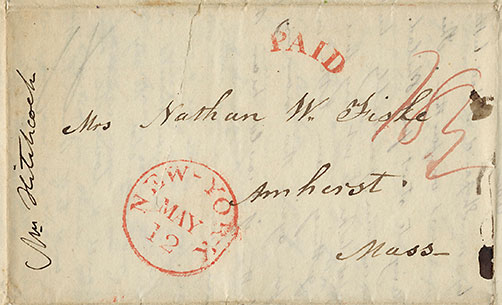 PAID
18¾
Mrs Nathan W. Fiske
Amherst
Mass-
NEW-YORK
MAY
12
Mrs Hitchcock